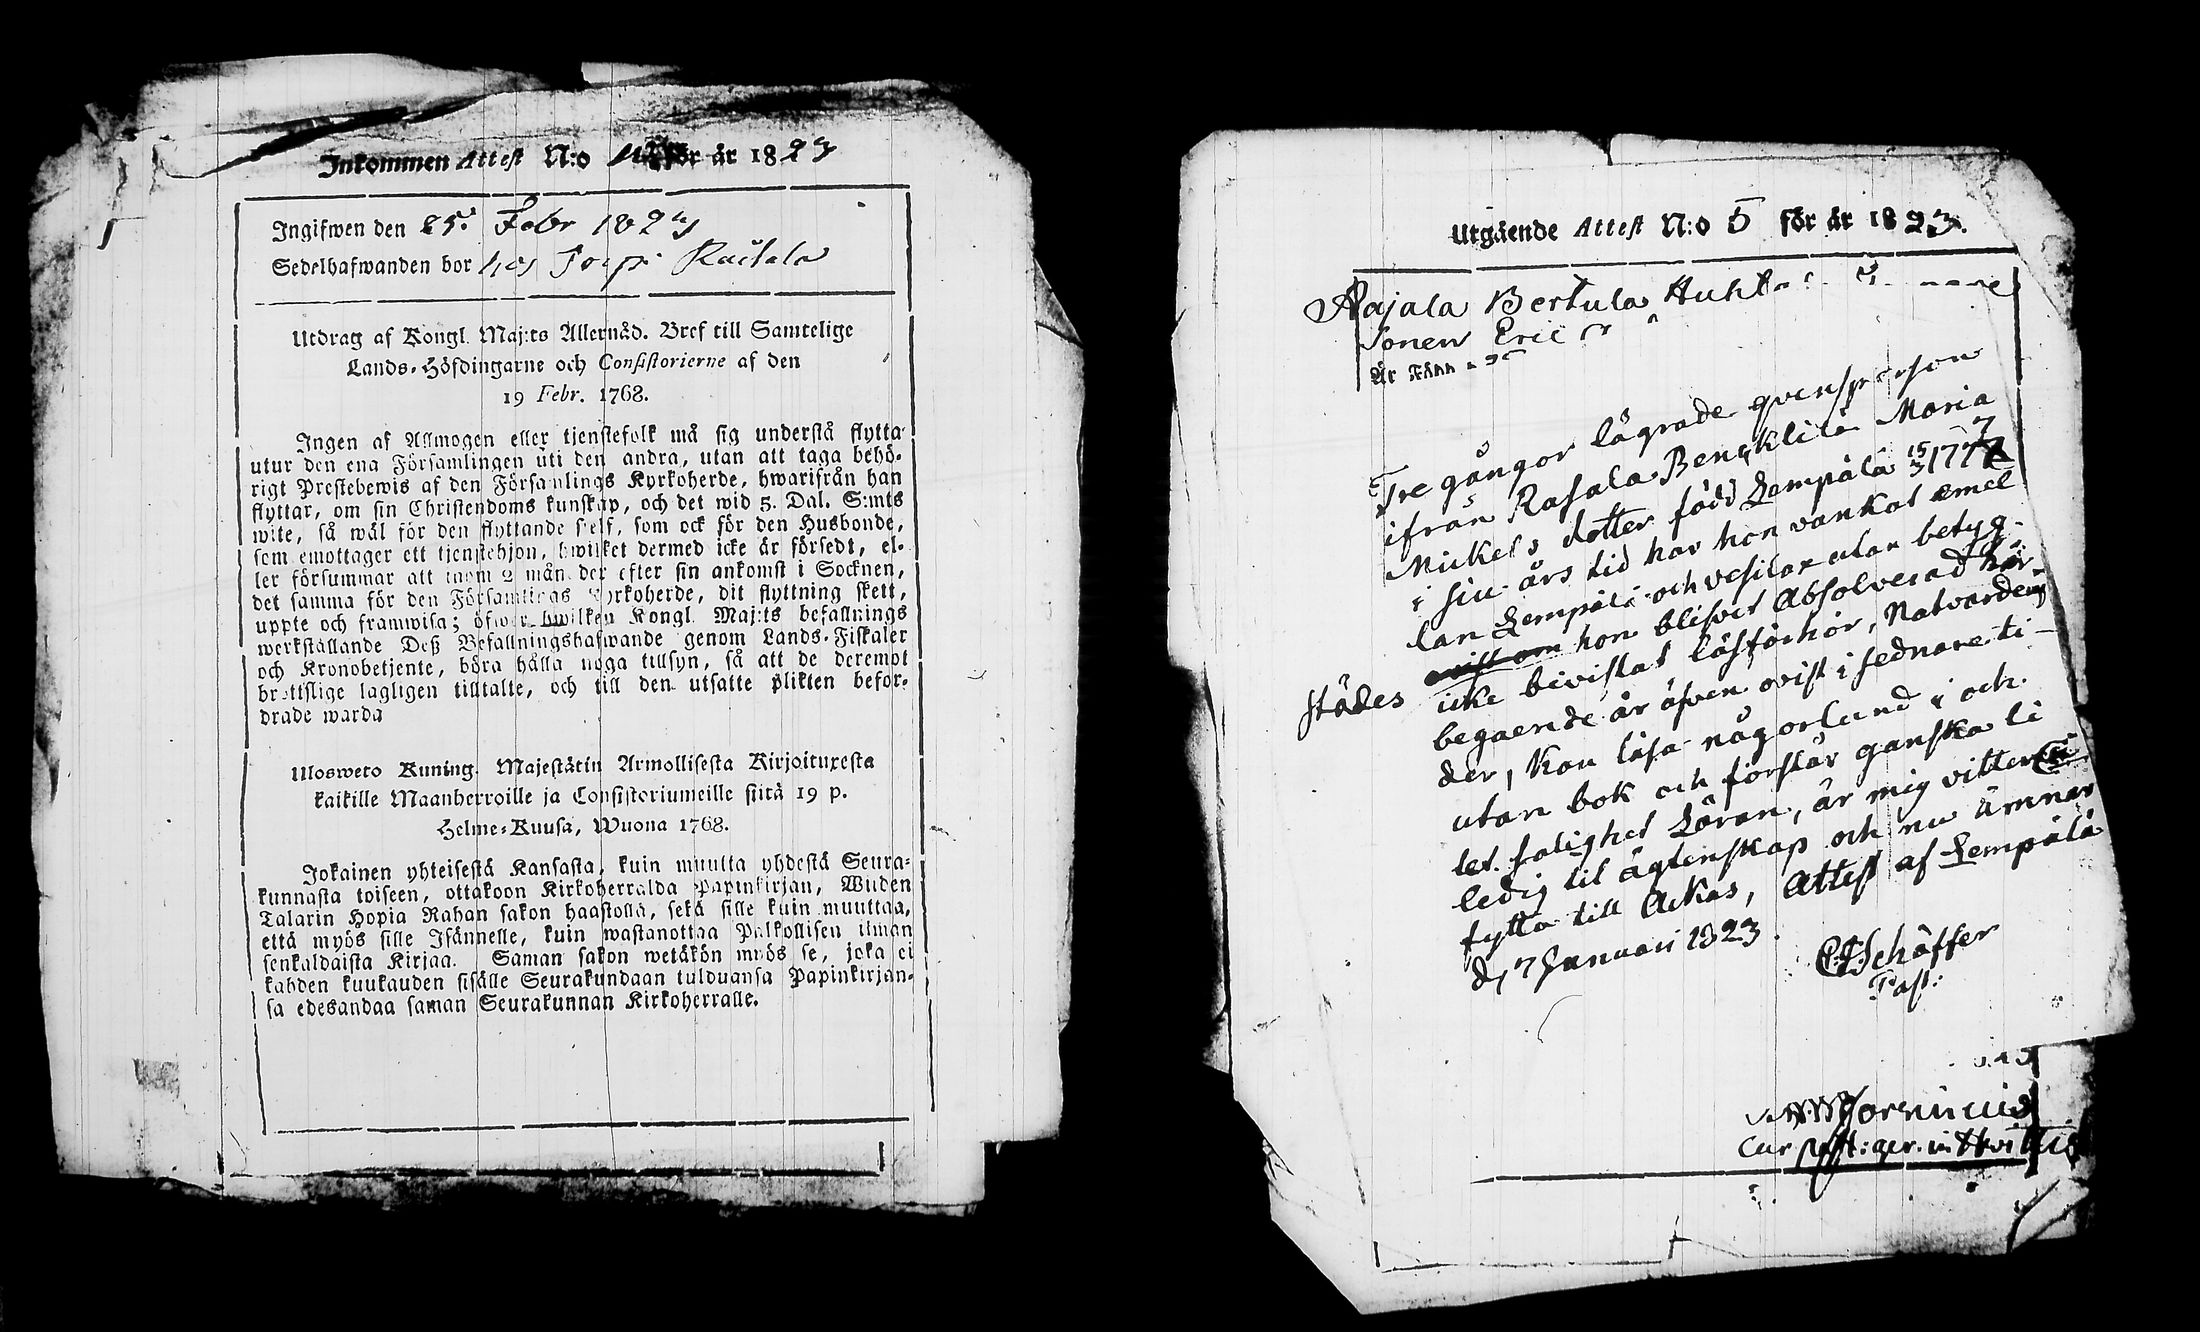 Inkommen Attest N:o för år 1823
Ingifwen den 25. Febr 1823
Sedelhafwanden bor hos
Utdrag af Kongl. Maj:ts Allernåd. Bref till Samtelige
Lands-Höfdingarne och Consistorierne af den
19 Febr. 1768.
Ingen af Allmogen eller tjenstefolk må sig understå flytta
utur den ena Församlingen uti den andra, utan att taga behö-
rigt Prestebewis af den Församlings Kyrkoherde, hwarifrån han
flyttar, om sin Christendoms kunskap, och det wid 5. Dal. S:mts
wite, så wäl för den flyttande sjelf, som ock för den Husbonde,
som emottager ett tjenstehjon, hwilket dermed icke är försedt, el-
ler försummar att inom 2 månader efter sin ankomst i Socknen,
det samma för den Församlings Kyrkoherde, dit flyttning skett,
uppte och framwisa; öfwer hwilken Kongl. Maj:ts befallnings
werkställande Deß Befallningshafwande genom Lands-Fiskaler
och Kronobetjente, böra hålla noga tillsyn, så att de deremot
brottslige lagligen tilltalte, och till den utsatte plikten befor-
drade warda
Ulosweto Kuning. Majestätin Armollisesta Kirjoituxesta
kaikille Maanherroille ja Consistoriumeille siitä 19 p.
Helme-Kuusa, Wuona 1768.
Jokainen yhteisestä Kansasta, kuin muutta yhdestä Seura-
kunnasta toiseen, ottakoon Kirkoherralda Papinkirjan, Wiiden
Talarin Hopia Rahan sakon haastolla, sekä sille kuin muuttaa,
että myös sille Isännelle, kuin wastanottaa Palkollisen ilman
senkaldaista Kirjaa. Saman sakon wetäkön myös se, joka ei
kahden kuukauden sisälle Seurakundaan tulduansa Papinkirjan-
sa edesandaa saman Seurakunnan Kirkoherralle.
Utgående Attest N:o 5 för år 1823.
Rajala Bertula
Sonen Eric
År
Tre gångor lägrade qvensperson
ifrån Rasala Bengklilä Maria
Mickels dotter född Lempälä 15/3 1777
i siu års tid har hon vankat emel
lan Lempälä och Vesilax utan betyg.
hon blifvit Absolverad här-
städes icke bevistat läsförhör, Natvardens
begaende är äfven ovist i sednare ti-
der, kan läsa någorlund i och
utan bok och förstår ganska li
tet. Salighet Läran, är mig vitterl:n
ledig til ägtenskap och nu ämnar
fytta till Ackas, Attest af Lempälä
d, 7 Januari 1823.
Schäffer
Past:
Cur past: ger. in Hvittis